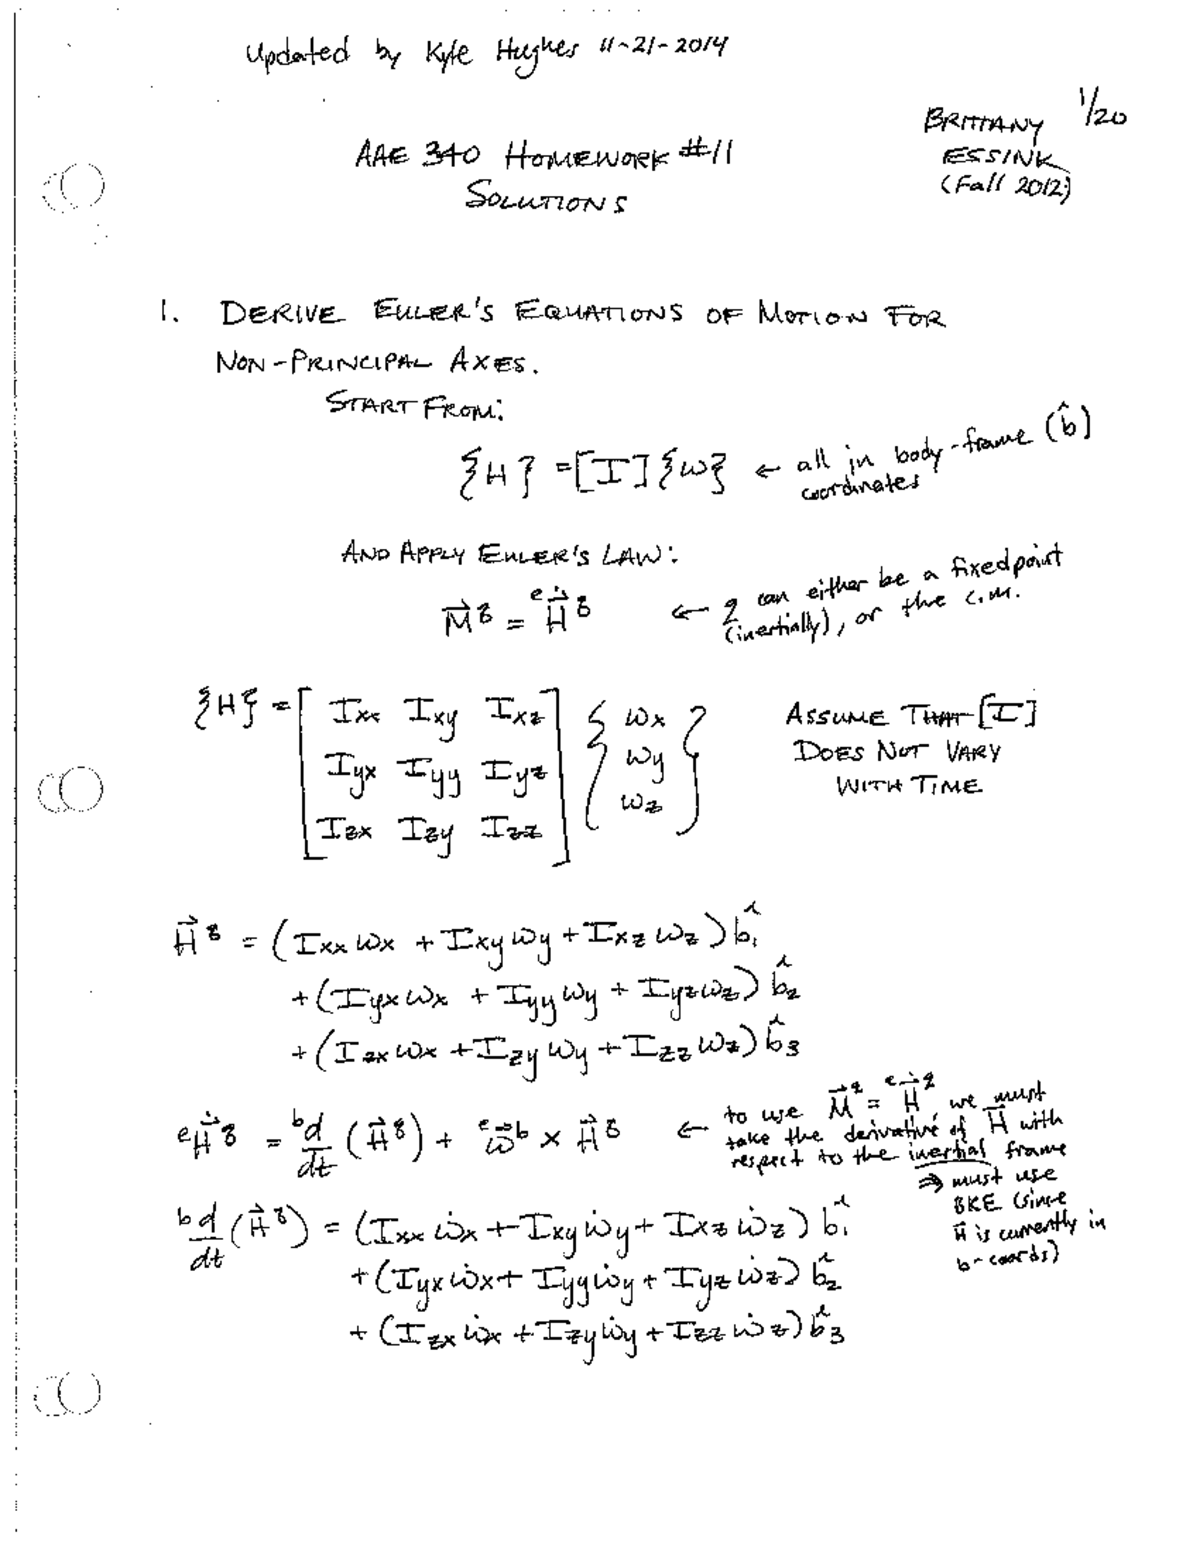 Updated by Kyle Hughes 11-21-2014
1/20
BRITTANY
ESSINK
(Fall 2012)
AAE 340 HOMEWORK #11
SOLUTIONS
1. DERIVE EULER'S EQUATIONS OF MOTION FOR
NON-PRINCIPAL AXES.
START FROM:
{H} = [I]{ω} ← all in body-frame (b̂)
coordinates
AND APPLY EULER'S LAW:
M⃗^q = ^e Ḣ⃗^q ← q can either be a fixed point
(inertially), or the c.m.
{H} = [ Ixx Ixy Ixz ] { ωx }
[ Iyx Iyy Iyz ] { ωy }
[ Izx Izy Izz ] { ωz }
ASSUME THAT [I]
DOES NOT VARY
WITH TIME
H⃗^q = (Ixx ωx + Ixy ωy + Ixz ωz) b̂1
+ (Iyx ωx + Iyy ωy + Iyz ωz) b̂2
+ (Izx ωx + Izy ωy + Izz ωz) b̂3
^e Ḣ⃗^q = ^b d/dt (H⃗^q) + ^e ω⃗^b × H⃗^q
← to use M⃗^q = ^e Ḣ⃗^q, we must
take the derivative of H⃗ with
respect to the inertial frame
⇒ must use
BKE (since
H⃗ is currently in
b-coords)
^b d/dt (H⃗^q) = (Ixx ω̇x + Ixy ω̇y + Ixz ω̇z) b̂1
+ (Iyx ω̇x + Iyy ω̇y + Iyz ω̇z) b̂2
+ (Izx ω̇x + Izy ω̇y + Izz ω̇z) b̂3